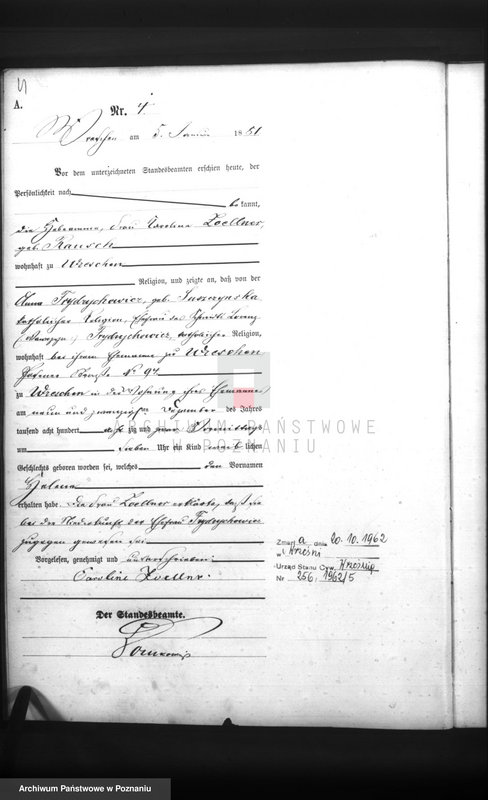 4
A.
Nr. 4.
Wreschen am 5. Januar 1881
Vor dem unterzeichneten Standesbeamten erschien heute, der
Persönlichkeit nach
bekannt,
die Hebeamme, Frau Caroline Zoellner,
geb. Rausch
wohnhaft zu Wreschen
Religion, und zeigte an, daß von der
Anna Frydrychowicz, geb. Suszczynska
katholischer Religion, Ehefrau des Lorenz
Frydrychowicz, katholischer Religion,
wohnhaft bei ihrem Ehemanne zu Wreschen
Posener Straße No 94
zu Wreschen in der Wohnung ihres Ehemannes
am neun und zwanzigsten Dezember des Jahres
tausend acht hundert achtzig und Vormittags
um sieben Uhr ein Kind weiblichen
Geschlechts geboren worden sei, welches den Vornamen
Helena
erhalten habe. Die Frau Zoellner erklärte, daß sie
bei der Niederkunft der Ehefrau Frydrychowicz
zugegen gewesen sei
Vorgelesen, genehmigt und unterschrieben:
Caroline Zoellner.
Der Standesbeamte.
Zmarł a dnia 20.10.1962
w Wrześni
Urząd Stanu Cyw. Września
Nr 256/1962/5
ARCHIWUM PAŃSTWOWE
W POZNANIU
Archiwum Państwowe w Poznaniu